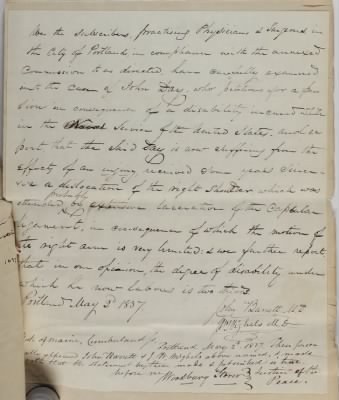 We the subscribers, practising Physicians & Surgeons in
the City of Portland, in compliance with the annexed
Commission to us directed, have carefully examined
into the case of John Day, who petitions for a pen
sion in consequence of a disability incurred while
in the Naval Service of the United States, and re
port that the said Day is now suffering from the
effects of an injury received some years since
a dislocation of the right shoulder which was
probably
attended by extensive laceration of the Capsular
ligament, in consequence of which the motion of
the right arm is very limited; & we further report,
that in our opinion, the degree of disability under
which he now labours is two thirds
Portland May 2d 1837
John Barrett M.D.
M.D.
State of Maine, Cumberland ss. Portland May 2d 1837. Then person
ally appeared John Barrett & J. W. above named, & made
oath that the statement by them made & subscribed is true.
before me Woodbury Storer Justice of the
Peace.